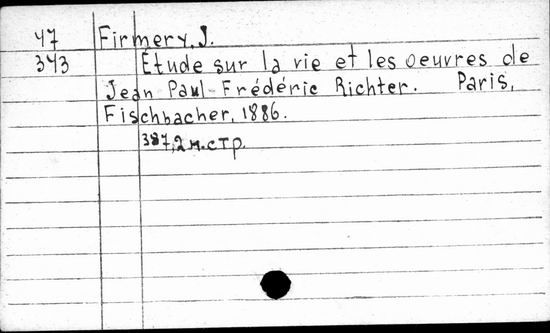 47 Firmery, J.
343 Étude sur la vie et les oeuvres de
Jean Paul Frédéric Richter. Paris,
Fischbacher, 1886.
387, 2 н. стр.